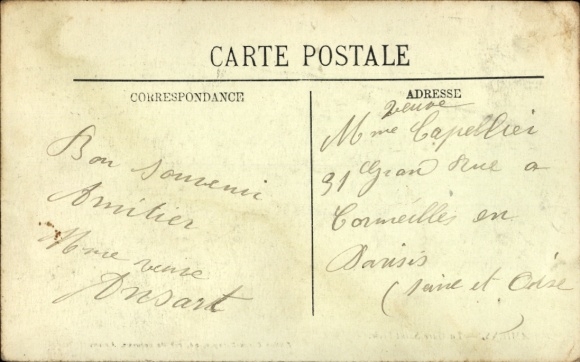 CARTE POSTALE
CORRESPONDANCE
Bon souvenir
Amitier
Mme veuve
Ansart
ADRESSE
veuve
Mme Capellier
31 Gran Rue a
Cormeilles en
Parisis
(Seine et Oise